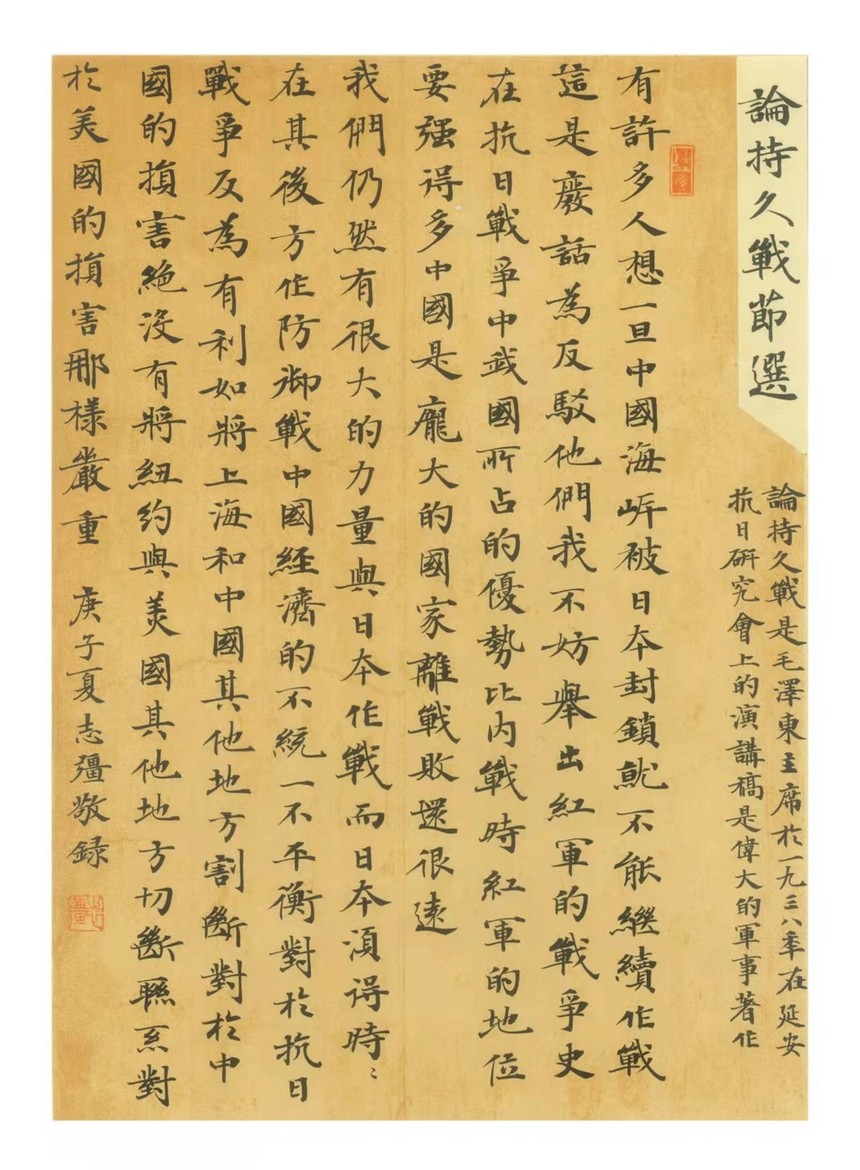 論持久戰節選
論持久戰是毛澤東主席於一九三八年在延安
抗日研究會上的演講稿是偉大的軍事著作
有許多人想一旦中國海岸被日本封鎖就不能繼續作戰
這是廢話為反駁他們我不妨舉出紅軍的戰爭史
在抗日戰爭中我國所占的優勢比内戰時紅軍的地位
要强得多中國是龐大的國家離戰敗還很遠
我們仍然有很大的力量與日本作戰而日本須得時〻
在其後方作防御戰中國經濟的不統一不平衡對於抗日
戰爭反為有利如將上海和中國其他地方割斷對於中
國的損害絕没有將紐約與美國其他地方切斷聯系對
於美國的損害那樣嚴重 庚子夏志彊敬録